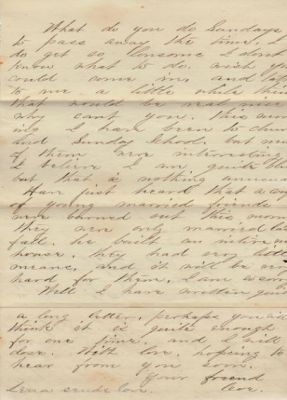 What do you do Sundays
to pass away the time, I
do get so lonesome I dont
know what to do. wish you
could come in and
to me a little while
that would be real nice
why cant you. This
ing I have been to
and Sunday School, but
of them were interesting
I believe I am quite
but that is nothing unusual
Have just heard that a
of young married friends
were burned out this morn
They were only married la
fall. he built an
house, they had very little
means, and it will be very
hard for them. I am so
Well I have written quite
a long letter, perhaps you will
think it is quite enough
for one time, and I will
close. With love, hoping to
hear from you soon.
Your friend
sends love.